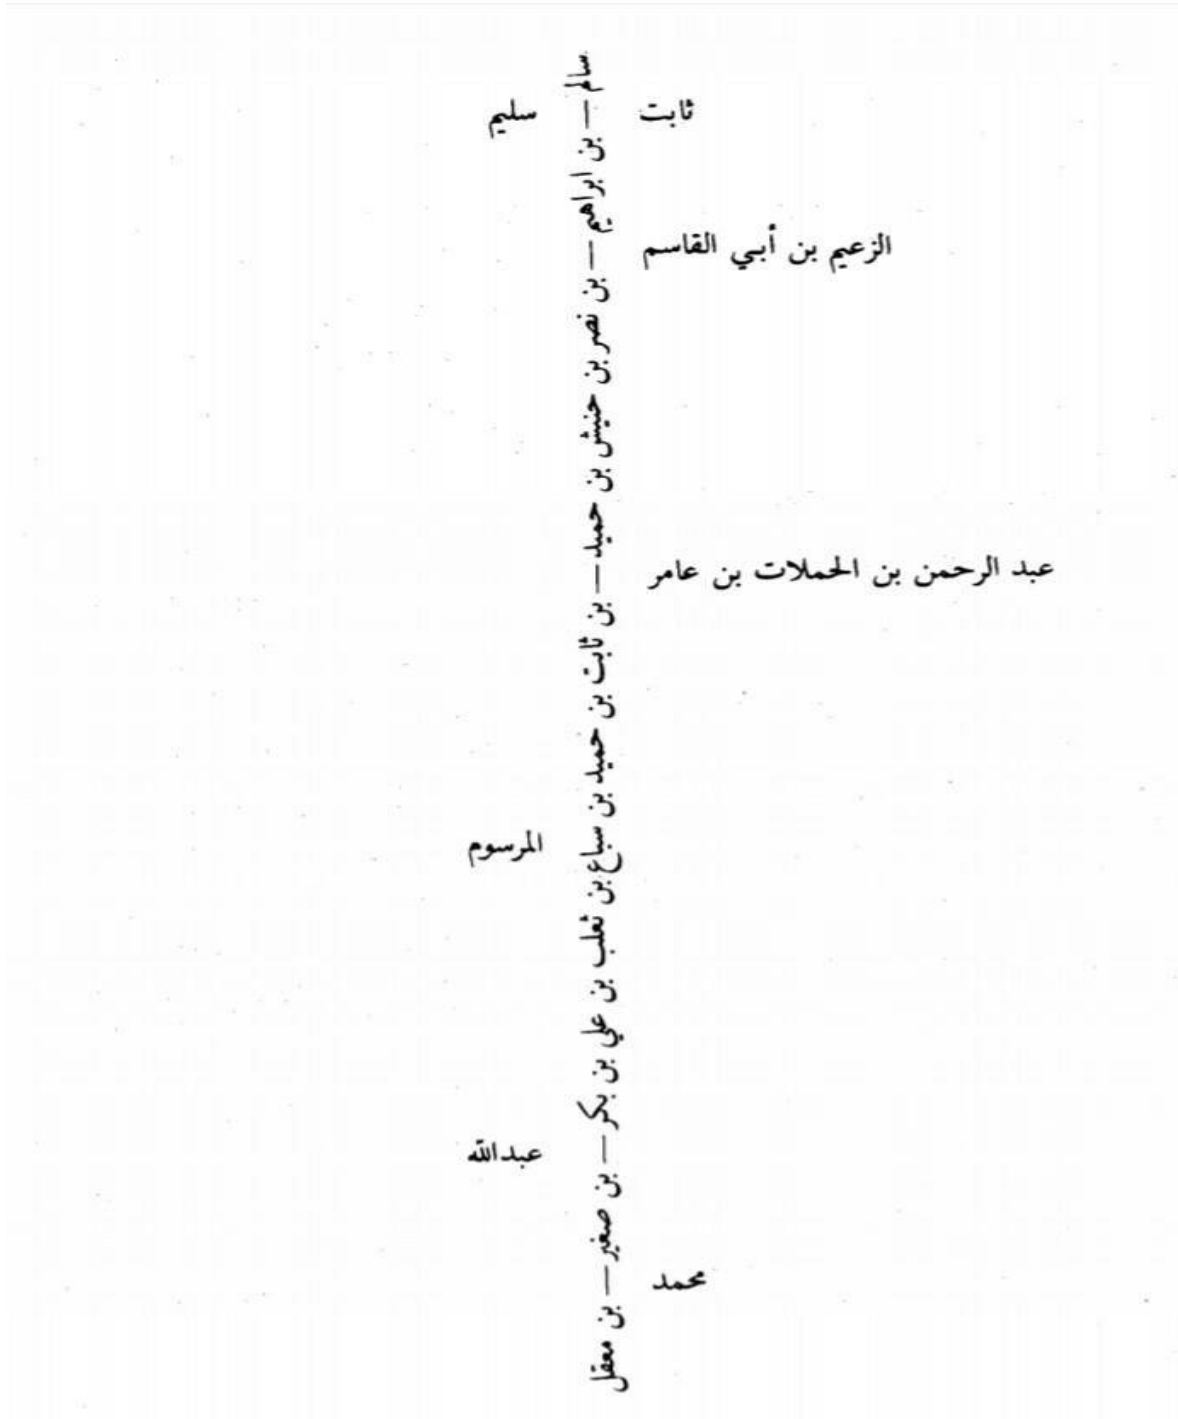 سالم — بن ابراهيم — بن نصر بن حنيش بن حميد — بن ثابت بن حميد بن سباع بن ثعلب بن علي بن بكر — بن صغير — بن معقل
ثابت
سليم
الزعيم بن أبي القاسم
عبد الرحمن بن الحملات بن عامر
المرسوم
عبدالله
محمد